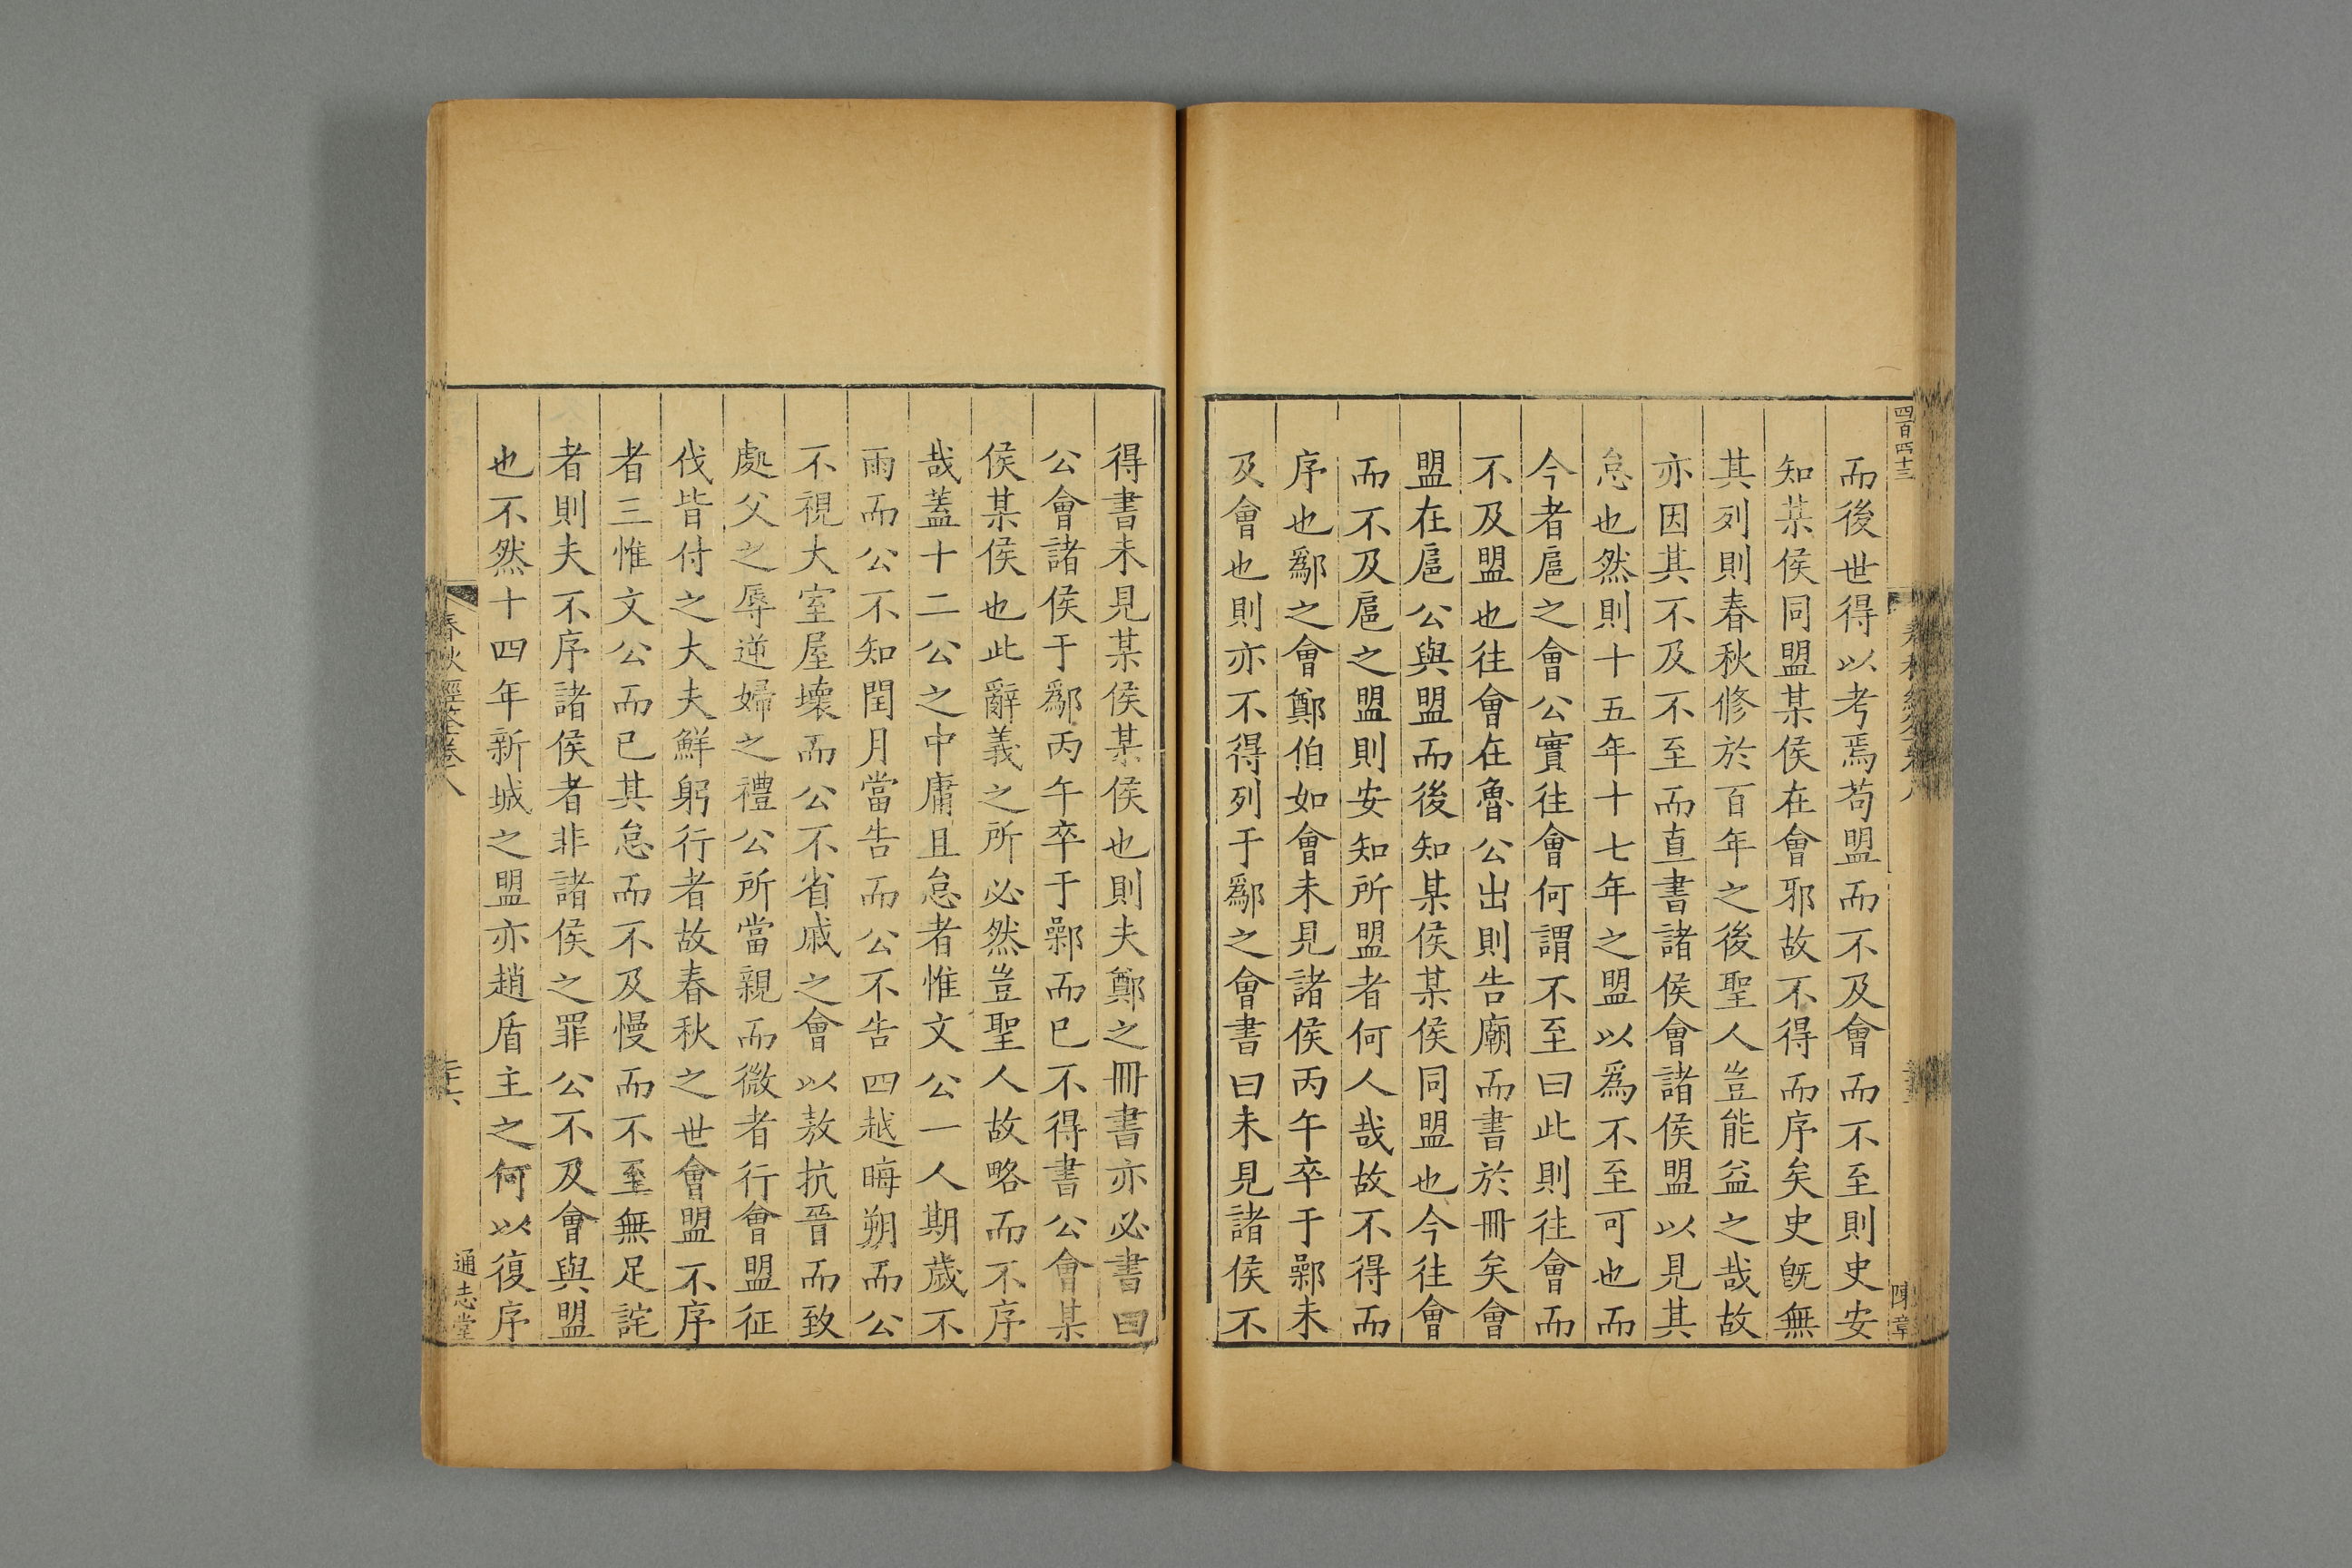 四百四十三
陳章
而後世得以考焉苟盟而不及會而不至則史安
知某侯同盟某侯在會邪故不得而序矣史旣無
其列則春秋修於百年之後聖人豈能益之哉故
亦因其不及不至而直書諸侯會諸侯盟以見其
怠也然則十五年十七年之盟以爲不至可也而
今者扈之會公實往會何謂不至曰此則往會而
不及盟也往會在魯公出則告廟而書於冊矣會
盟在扈公與盟而後知某侯某侯同盟也今往會
而不及扈之盟則安知所盟者何人哉故不得而
序也鄬之會鄭伯如會未見諸侯丙午卒于鄵未
及會也則亦不得列于鄬之會書曰未見諸侯不
得書未見某侯某侯也則夫鄭之冊書亦必書曰
公會諸侯于鄬丙午卒于鄵而已不得書公會某
侯某侯也此辭義之所必然豈聖人故略而不序
哉蓋十二公之中庸且怠者惟文公一人期歲不
雨而公不知閏月當告而公不告四越晦朔而公
不視大室屋壞而公不省戚之會以敖抗晉而致
處父之辱逆婦之禮公所當親而微者行會盟征
伐皆付之大夫鮮躬行者故春秋之世會盟不序
者三惟文公而已其怠而不及慢而不至無足詫
者則夫不序諸侯者非諸侯之罪公不及會與盟
也不然十四年新城之盟亦趙盾主之何以復序
春秋經筌卷八
通志堂